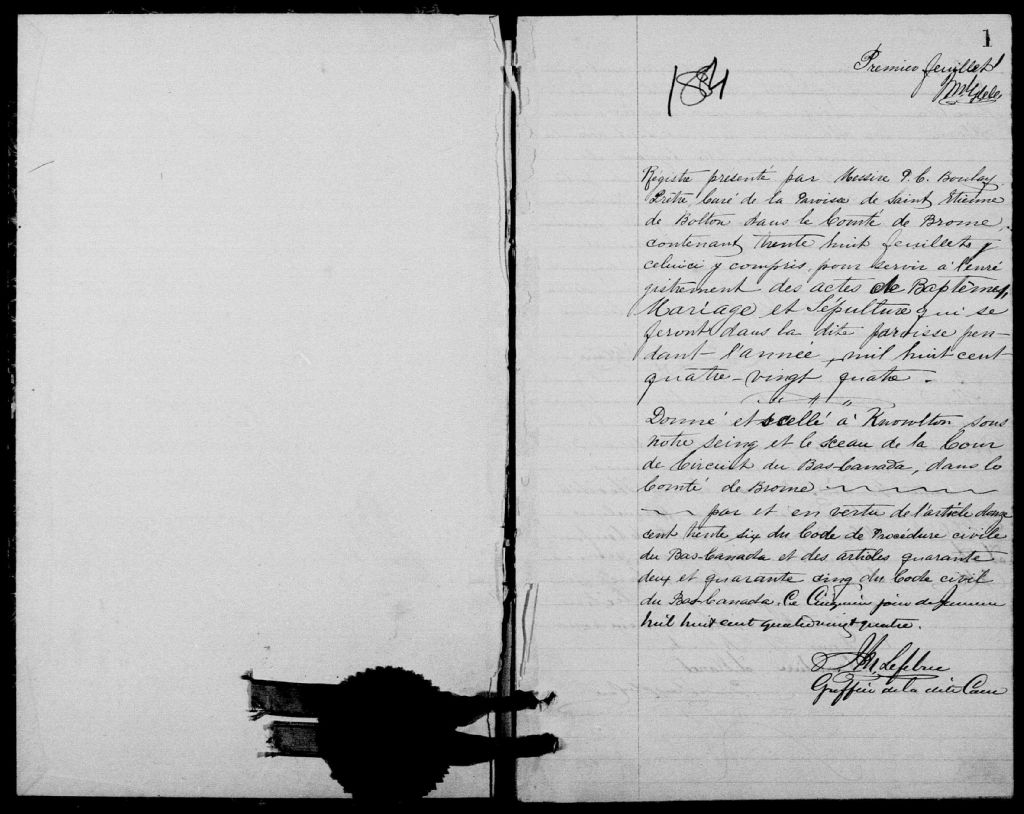 1
Premier feuillet
1884
Registre presenté par Messire P. C. Boulay
Prêtre, Curé de la Paroisse de Saint Etienne
de Bolton dans le Comté de Brome,
contenant trente huit feuillets y
celuici y compris, pour servir à l'enré
gistrement des actes de Baptêmes,
Mariage et Sépulture qui se
feront dans la dite paroisse pen-
dant l'année, mil huit cent
quatre-vingt quatre.
Donné et scellé à Knowlton sous
notre seing et le sceau de la Cour
de Circuit du Bas-Canada, dans le
Comté de Brome
par et en vertu de l'article douze
cent trente six du Code de Procédure civile
du Bas-Canada et des articles quarante
deux et quarante cinq du Code civil
du Bas-Canada. Ce Cinquieme jour de Janvier
Mil huit cent quatrevingt quatre.
Lefebvre
Greffier de la dite Cour